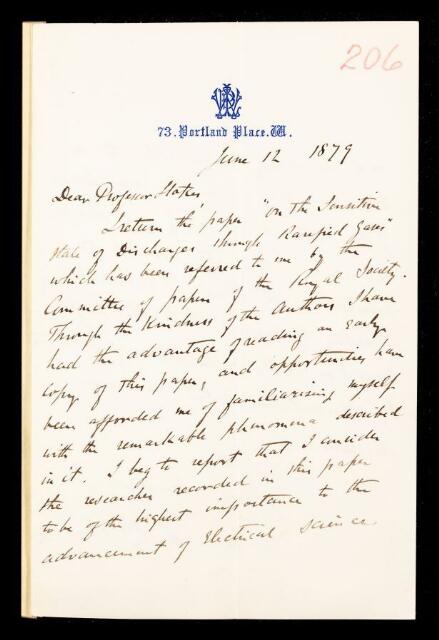 206
73. Portland Place. W.
June 12 1879
Dear Professor Stokes,
I return the paper "on the Sensitive
state of Discharges through Rarefied Gases"
which has been referred to me by the
Committee of papers of the Royal Society.
Through the kindness of the Authors I have
had the advantage of reading an early
copy of this paper, and opportunities have
been afforded me of familiarizing myself
with the remarkable phenomena described
in it. I beg to report that I consider
the researches recorded in this paper
to be of the highest importance to the
advancement of Electrical science